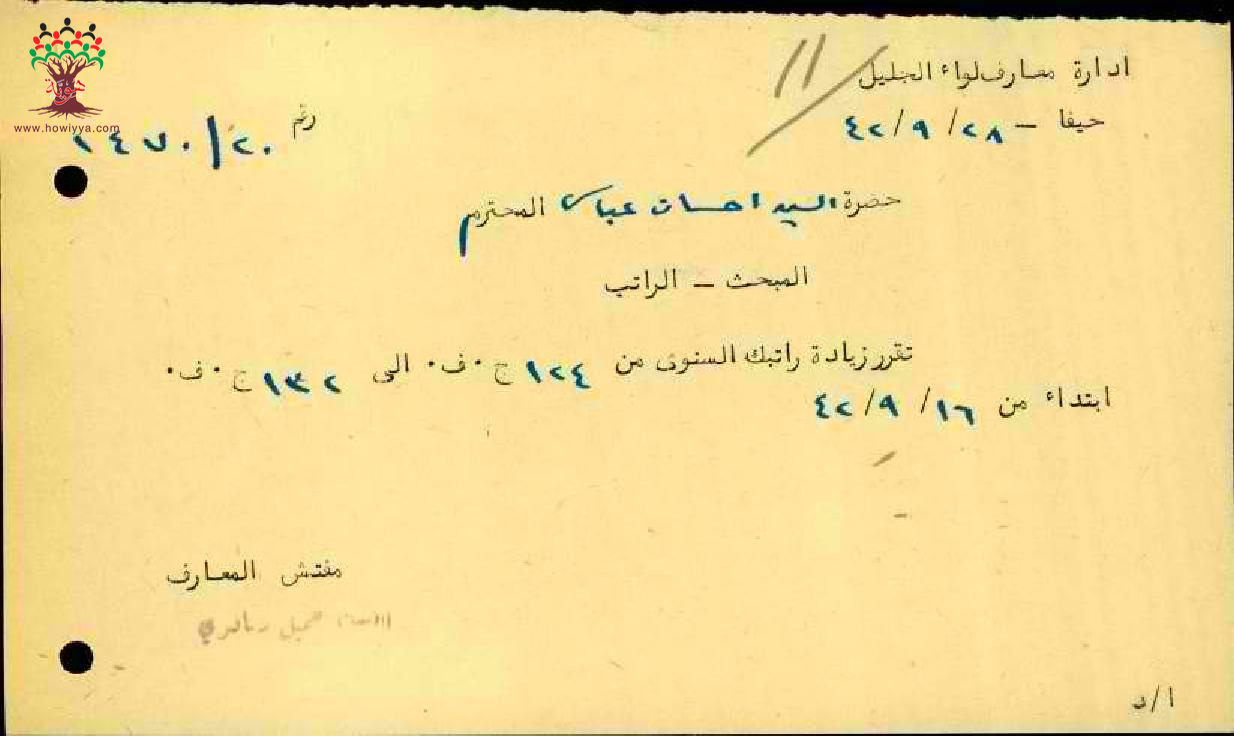 ادارة معارف لواء الجليل
حيفا – ٢٨/ ٩/ ٤٢
رقم ٢٠/ ١٤٧٠
١١
هوية
www.howiyya.com
حضرة السيد احسان عباس المحترم
المبحث – الراتب
تقرر زيادة راتبك السنوى من ١٢٤ ج٠ ف٠ الى ١٣٢ ج٠ ف٠
ابتداء من ١٦/ ٩/ ٤٢
مفتش المعارف
جميل
ا/د